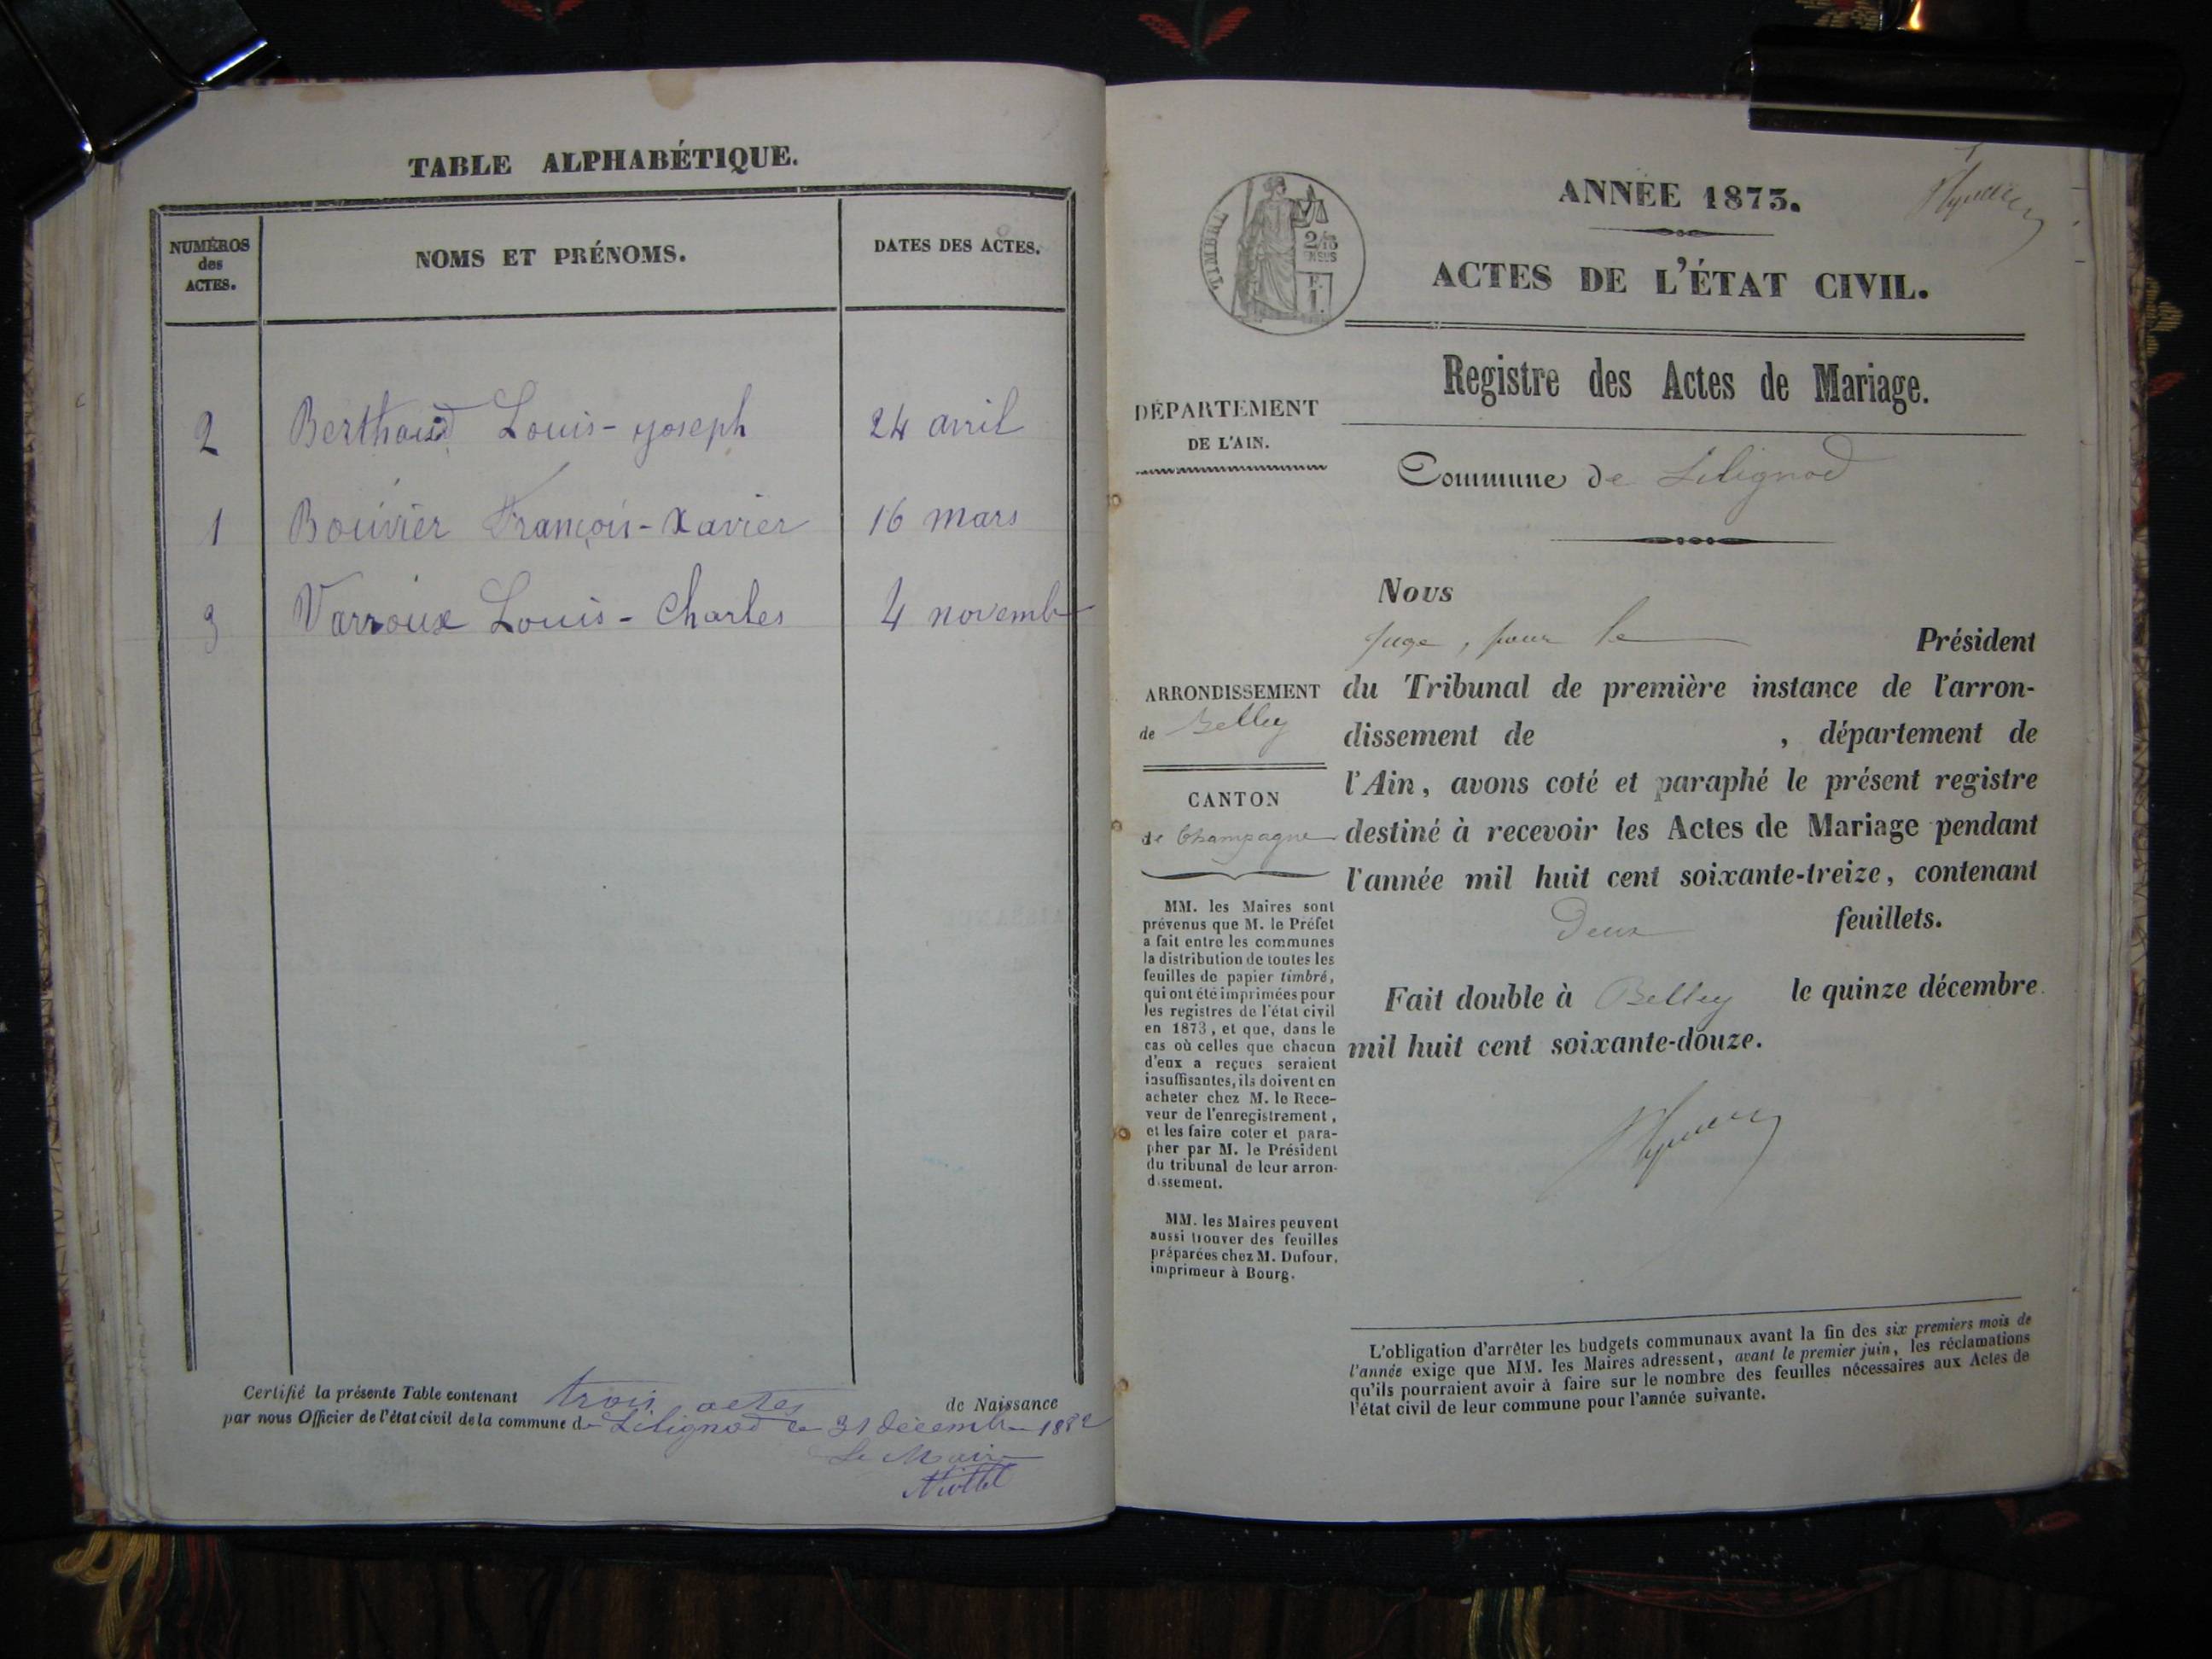 TABLE ALPHABÉTIQUE.
NUMÉROS
des
ACTES.
NOMS ET PRÉNOMS.
DATES DES ACTES.
2 Berthoud Louis-joseph 24 avril
1 Bouvier François-Xavier 16 mars
3 Varroux Louis-Charles 4 novemb
Certifié la présente Table contenant trois actes de Naissance
par nous Officier de l'état civil de la commune de Lilignod le 31 décembre 1882
Le Maire
ANNÉE 1873.
TIMBRE
ACTES DE L'ÉTAT CIVIL.
Registre des Actes de Mariage.
DÉPARTEMENT
DE L'AIN.
Commune de Lilignod
ARRONDISSEMENT
de Belley
CANTON
de Champagne
MM. les Maires sont
prévenus que M. le Préfet
a fait entre les communes
la distribution de toutes les
feuilles de papier timbré,
qui ont été imprimées pour
les registres de l'état civil
en 1873, et que, dans le
cas où celles que chacun
d'eux a reçues seraient
insuffisantes, ils doivent en
acheter chez M. le Rece-
veur de l'enregistrement,
et les faire coter et para-
pher par M. le Président
du tribunal de leur arron-
dissement.
MM. les Maires peuvent
aussi trouver des feuilles
préparées chez M. Dufour,
imprimeur à Bourg.
Nous
juge, pour le Président
du Tribunal de première instance de l'arron-
dissement de , département de
l'Ain, avons coté et paraphé le présent registre
destiné à recevoir les Actes de Mariage pendant
l'année mil huit cent soixante-treize, contenant
Deux feuillets.
Fait double à Belley le quinze décembre
mil huit cent soixante-douze.
L'obligation d'arrêter les budgets communaux avant la fin des six premiers mois de
l'année exige que MM. les Maires adressent, avant le premier juin, les réclamations
qu'ils pourraient avoir à faire sur le nombre des feuilles nécessaires aux Actes de
l'état civil de leur commune pour l'année suivante.